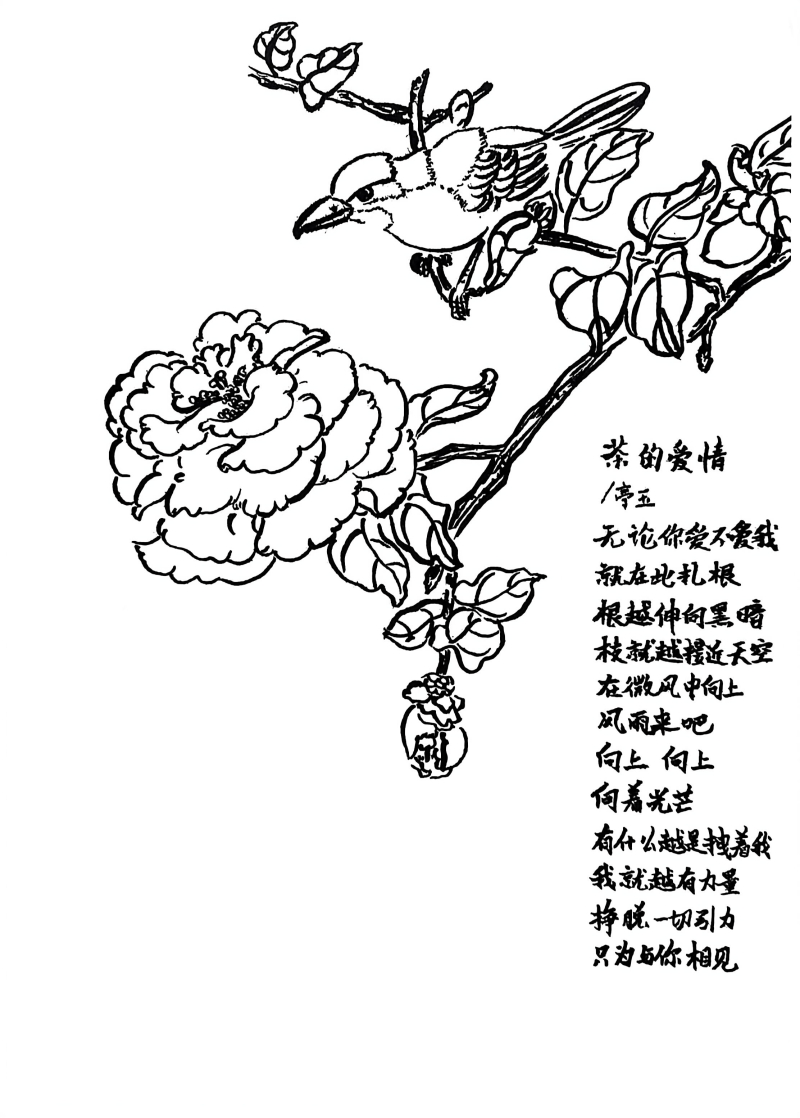 茶的爱情
/亭五
无论你爱不爱我
就在此扎根
根越伸向黑暗
枝就越接近天空
在微风中向上
风雨来吧
向上 向上
向着光芒
有什么越是拽着我
我就越有力量
挣脱一切引力
只为与你相见